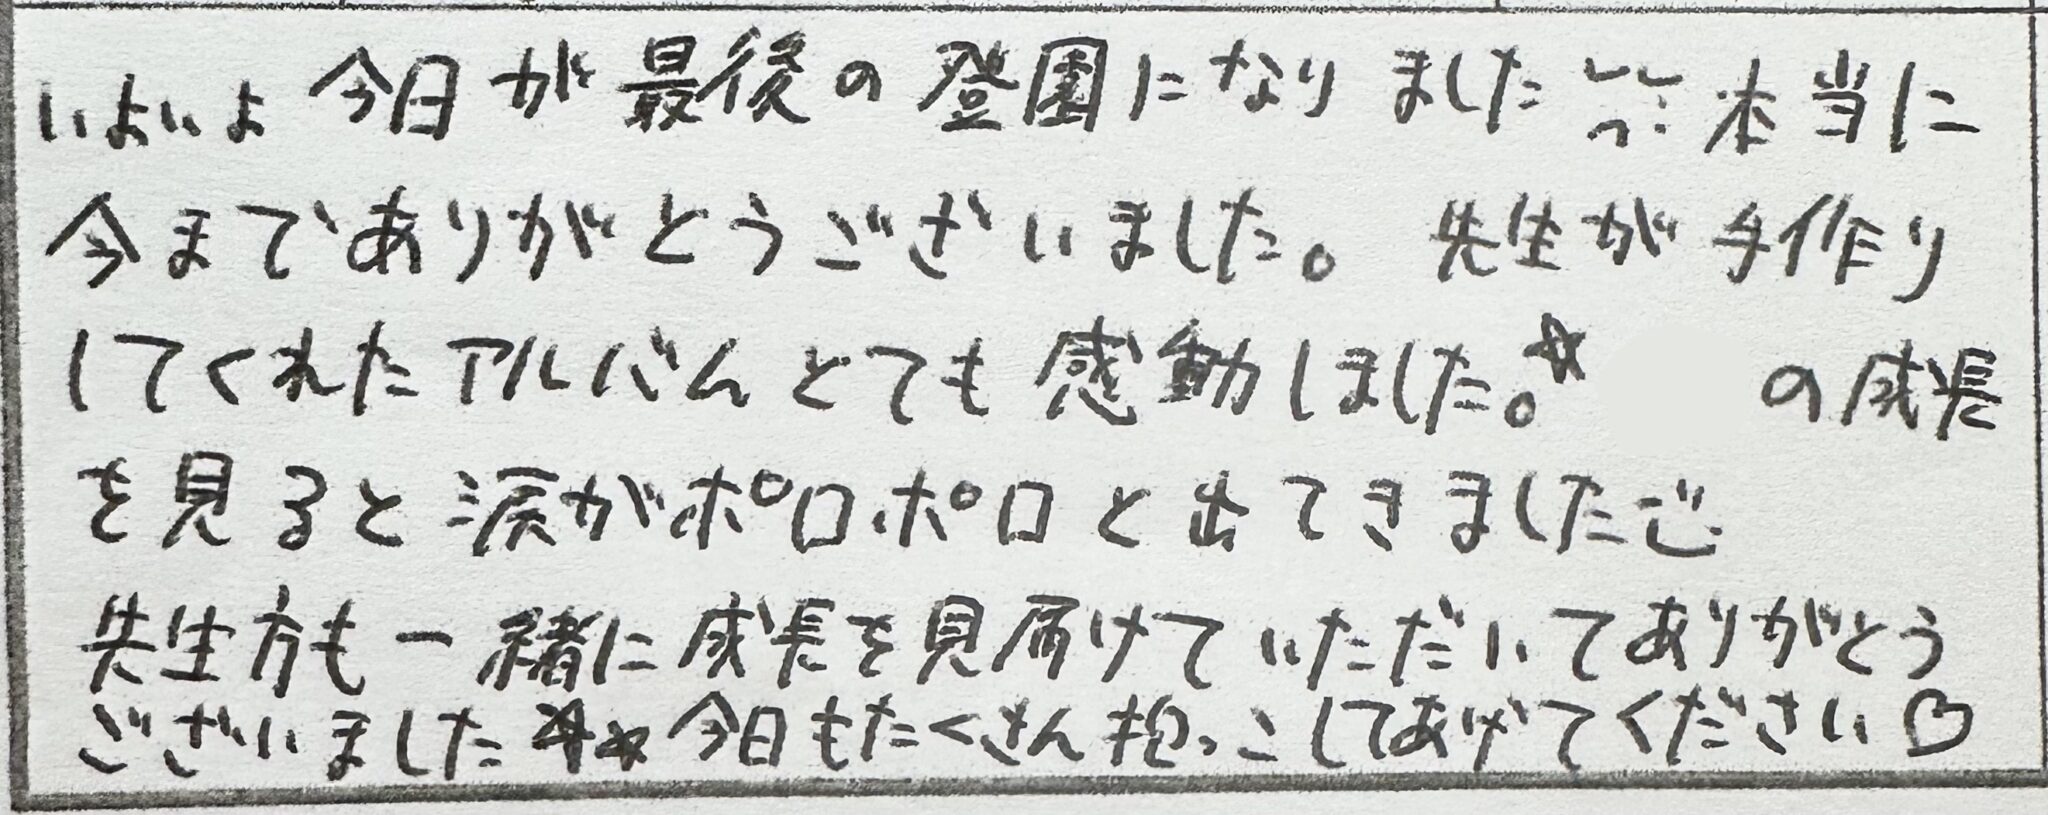 いよいよ今日が最後の登園になりました 本当に
今までありがとうございました。先生が手作り
してくれたアルバムとても感動しました。☆ の成長
を見ると涙がポロポロと出てきました
先生方も一緒に成長を見届けていただいてありがとう
ございました☆☆今日もたくさん抱っこしてあげてください♡